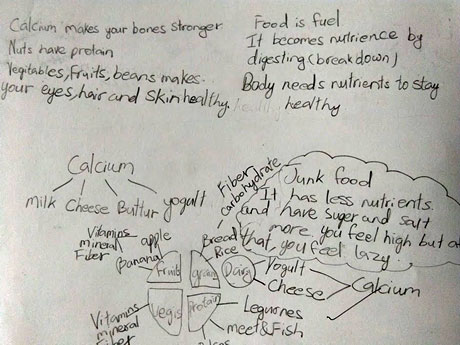 Calcium makes your bones stronger
Nuts have protein
Vegitables, fruits, beans makes
your eyes, hair and skin healthy.
Food is fuel
It becomes nutrience by
digesting (breakdown)
Body needs nutrients to stay
healthy
Calcium
milk Cheese Buttur yogult
Fiber
carbohydrate
Junk food
It has less nutrients
and have suger and salt
more you feel high but a
that you feel lazy.
Vitamins
mineral
Fiber
apple
Banana
Fruit
Bread
Rice
grain
Dairy
Yogult
Cheese
Calcium
Vitamins
mineral
Fiber
Vegis
Protein
Legumes
meet & Fish